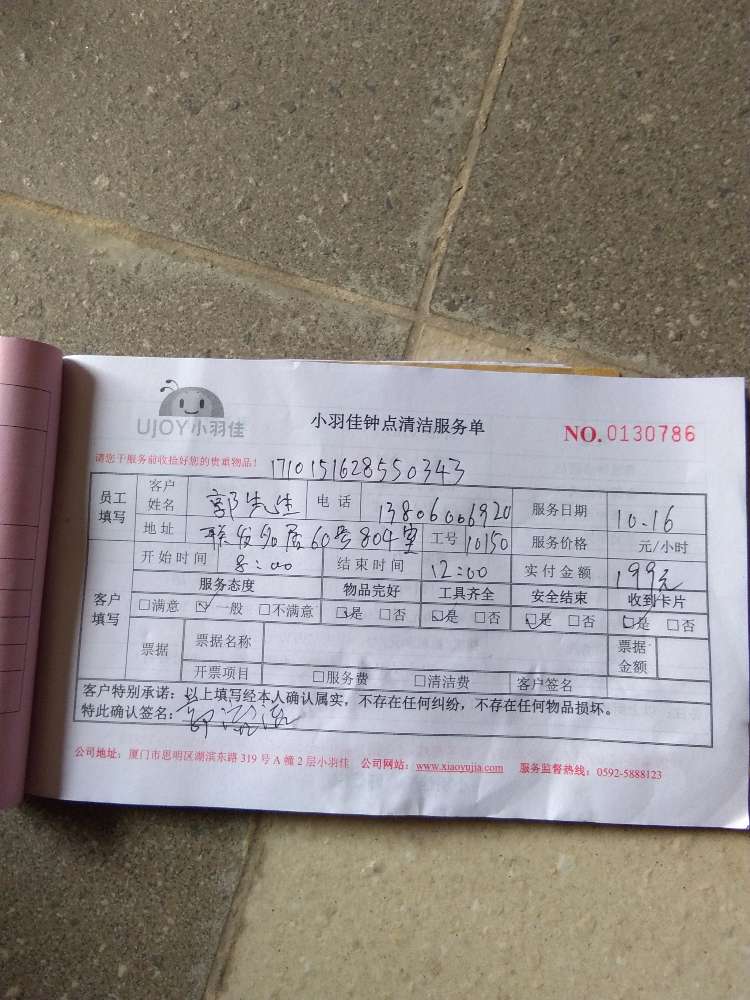 UJOY小羽佳
小羽佳钟点清洁服务单
NO.0130786
请您于服务前收拾好您的贵重物品! 1710151628550343
员工填写 客户姓名 郭先生 电话 13806006920 服务日期 10.16
地址 联发名居60号804室 工号 10150 服务价格 元/小时
客户填写 开始时间 8:00 结束时间 12:00 实付金额 199元
服务态度 物品完好 工具齐全 安全结束 收到卡片
□满意 ☑一般 □不满意 ☑是 □否 ☑是 □否 ☑是 □否 ☑是 □否
票据 票据名称 票据金额
开票项目 □服务费 □清洁费 客户签名
客户特别承诺:以上填写经本人确认属实,不存在任何纠纷,不存在任何物品损坏。
特此确认签名:
公司地址:厦门市思明区湖滨东路 319 号 A 幢 2 层小羽佳 公司网站:www.xiaoyujia.com 服务监督热线:0592-5888123